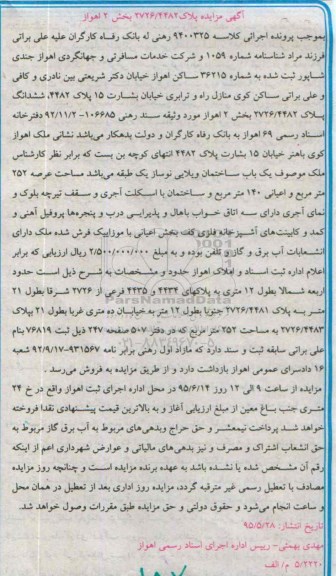 آگهی مزایده پلاک ۲۷۲۶/۴۴۸۲ بخش ۲ اهواز
بموجب پرونده اجرائی کلاسه ۹۴۰۰۳۲۵ رهنی له بانک رفاه کارگران علیه علی براتی
فرزند مراد شناسنامه شماره ۱۰۵۹ و شرکت خدمات مسافرتی و جهانگردی اهواز جندی
شاپور ثبت شده به شماره ۳۶۲۱۵ ساکن اهواز خیابان دکتر شریعتی بین نادری و کافی
و علی براتی ساکن کوی منازل راه و ترابری خیابان بشارت ۱۵ پلاک ۴۴۸۲، ششدانگ
پلاک ۲۷۲۶/۴۴۸۲ بخش ۲ اهواز مورد وثیقه سند رهنی ۱۰۶۶۸۵- ۹۲/۱۱/۲ دفترخانه
اسناد رسمی ۶۹ اهواز به بانک رفاه کارگران و دولت بدهکار می‌باشد نشانی ملک اهواز
کوی باهنر خیابان ۱۵ بشارت پلاک ۴۴۸۲ انتهای کوچه بن بست که برابر نظر کارشناس
ملک موصوف یک باب ساختمان ویلایی نوساز یک طبقه می‌باشد مساحت عرصه ۲۵۲
متر مربع و اعیانی ۱۴۰ متر مربع و ساختمان با اسکلت آجری و سقف تیرچه بلوک و
نمای آجری دارای سه اتاق خواب باهال و پذیرایی درب و پنجره‌ها پروفیل آهنی و
کمد و کابینت‌های آشپزخانه فلزی کف بخش اعیانی با موزاییک فرش شده ملک دارای
انشعابات آب برق و گاز و تلفن بوده و به مبلغ ۲/۵۰۰/۰۰۰/۰۰۰ ریال ارزیابی که برابر
اعلام اداره ثبت اسناد و املاک اهواز حدود و مشخصات به شرح ذیل است حدود
اربعه شمالا بطول ۱۲ متری به پلاکهای ۴۴۳۴ و ۴۴۳۵ فرعی از ۲۷۲۶ شرقا بطول ۲۱
متر به پلاک ۲۷۲۶/۴۴۸۱ جنوبا بطول ۱۲ متر به خیابان ده متری غربا بطول ۲۱ بپلاک
۲۷۲۶/۴۴۸۳ به مساحت ۲۵۲ متر مربع که در دفتر ۵۰۷ صفحه ۲۴۷ ذیل ثبت ۷۶۸۱۹ بنام
علی براتی سابقه ثبت و سند دارد که مازاد اول رهنی برابر نامه ۹۳۱۵۶۷-۹۲/۹/۱۷ شعبه
۱۶ دادسرای عمومی اهواز بازداشت دارد و از طریق مزایده به فروش می‌رسد.
مزایده از ساعت ۹ الی ۱۲ روز ۹۵/۶/۱۴ در محل اداره اجرای ثبت اهواز واقع در خ ۲۴
متری جنب باغ معین از مبلغ ارزیابی آغاز و به بالاترین قیمت پیشنهادی نقدا فروخته
خواهد شد پرداخت نیمعشر و حق حراج وبدهی‌های مربوط به آب برق گاز مربوط به
حق انشعاب اشتراک و مصرف و نیز بدهی‌های مالیاتی و عوارض شهرداری اعم از اینکه
رقم آن مشخص شده یا نشده باشد به عهده برنده مزایده است و چنانچه روز مزایده
مصادف با تعطیل رسمی غیر مترقبه گردد، مزایده روز اداری بعد از تعطیل در همان محل
و ساعت انجام می‌شود و حقوق دولتی و حق مزایده طبق مقررات وصول خواهد شد.
تاریخ انتشار: ۹۵/۵/۲۸
مهدی بهمئی- رییس اداره اجرای اسناد رسمی اهواز
۵/۲۲۲۰ م/ الف